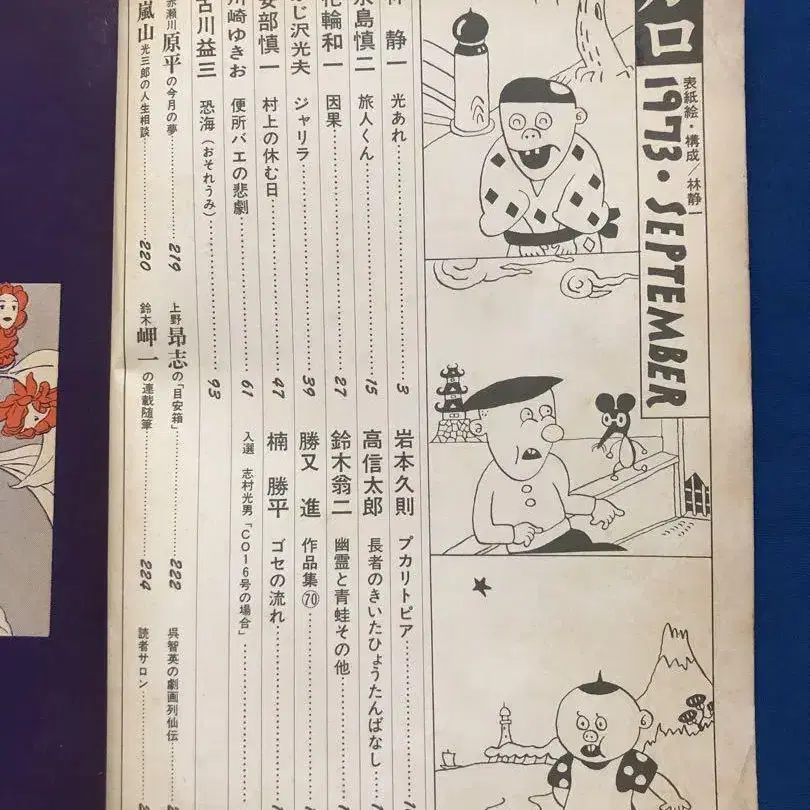 ロ
1973・SEPTEMBER
表紙絵・構成／林静一
静一 光あれ……3
永島慎二 旅人くん……15
花輪和一 因果……27
じ沢光夫 ジャリラ……39
安部慎一 村上の休む日……47
川崎ゆきお 便所バエの悲劇……61
古川益三 恐海（おそれうみ）……93
岩本久則 プカリトピア……1
高信太郎 長者のきいたひょうたんばなし……1
鈴木翁二 幽霊と青蛙その他……1
勝又 進 作品集㊵
楠 勝平 ゴセの流れ……1
入選 志村光男「CO16号の場合」……
赤瀬川原平の今月の夢……219
上野昂志の「目安箱」……222
呉智英の劇画列仙伝……2
嵐山光三郎の人生相談……220
鈴木岬一の連載随筆……224
読者サロン……2